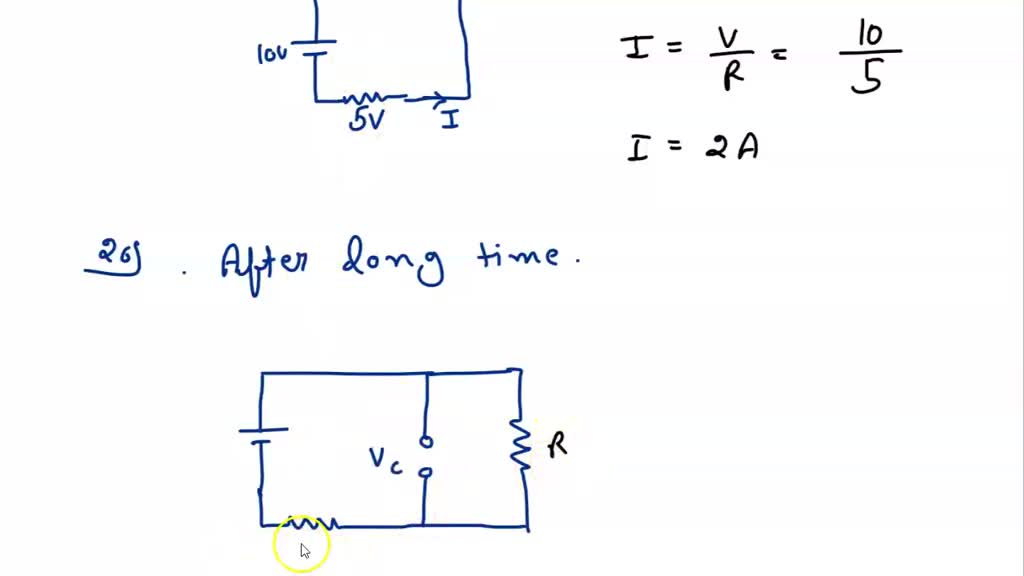 10V
5V I
I = V/R = 10/5
I = 2A
20). After long time.
Vc
R